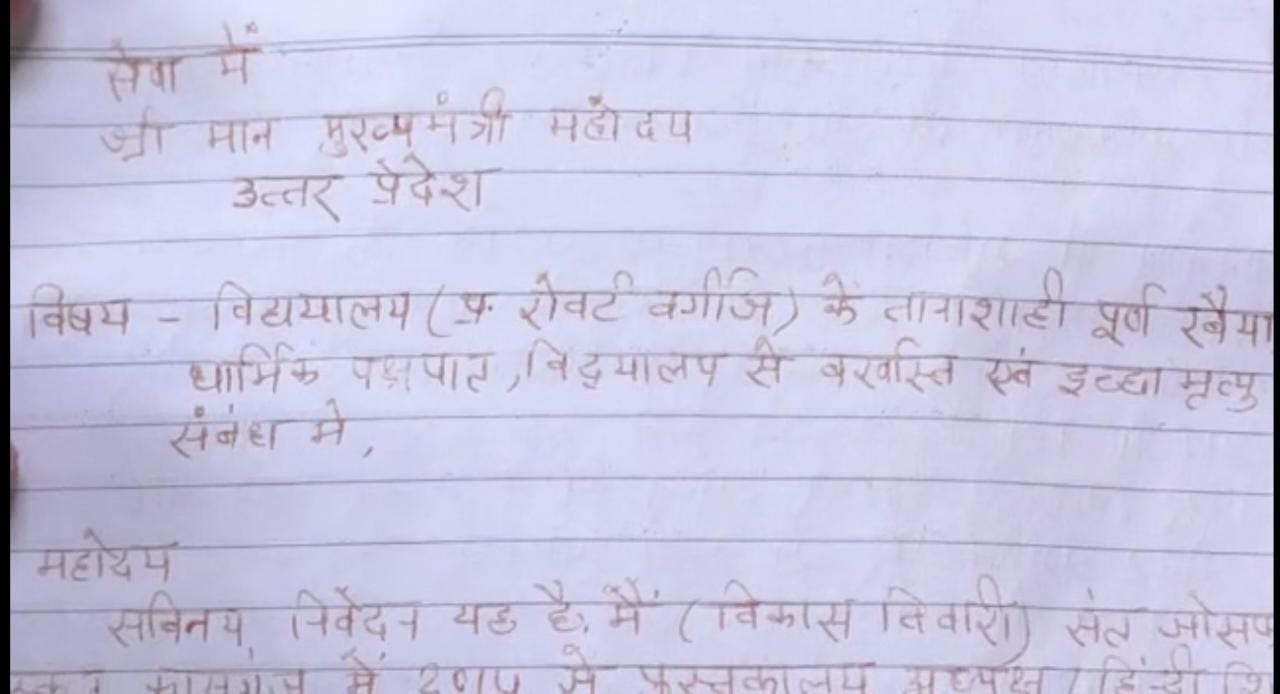 सेवा में
श्री मान मुख्यमंत्री महोदय
उत्तर प्रेदेश
विषय - विद्ययालय (प्र. रोवर्ट वर्गीजि) के तानाशाही पूर्ण रबैया
धार्मिक पक्षपात, विद्यालय से बर्खास्त एवं इच्छा मृत्यु
संबंध मे,
महोदय
सविनय निवेदन यह है. मैं (विकास तिवारी) संत जोसफ
कासगंज में से पुस्तकालय अध्यक्ष / हिन्दी